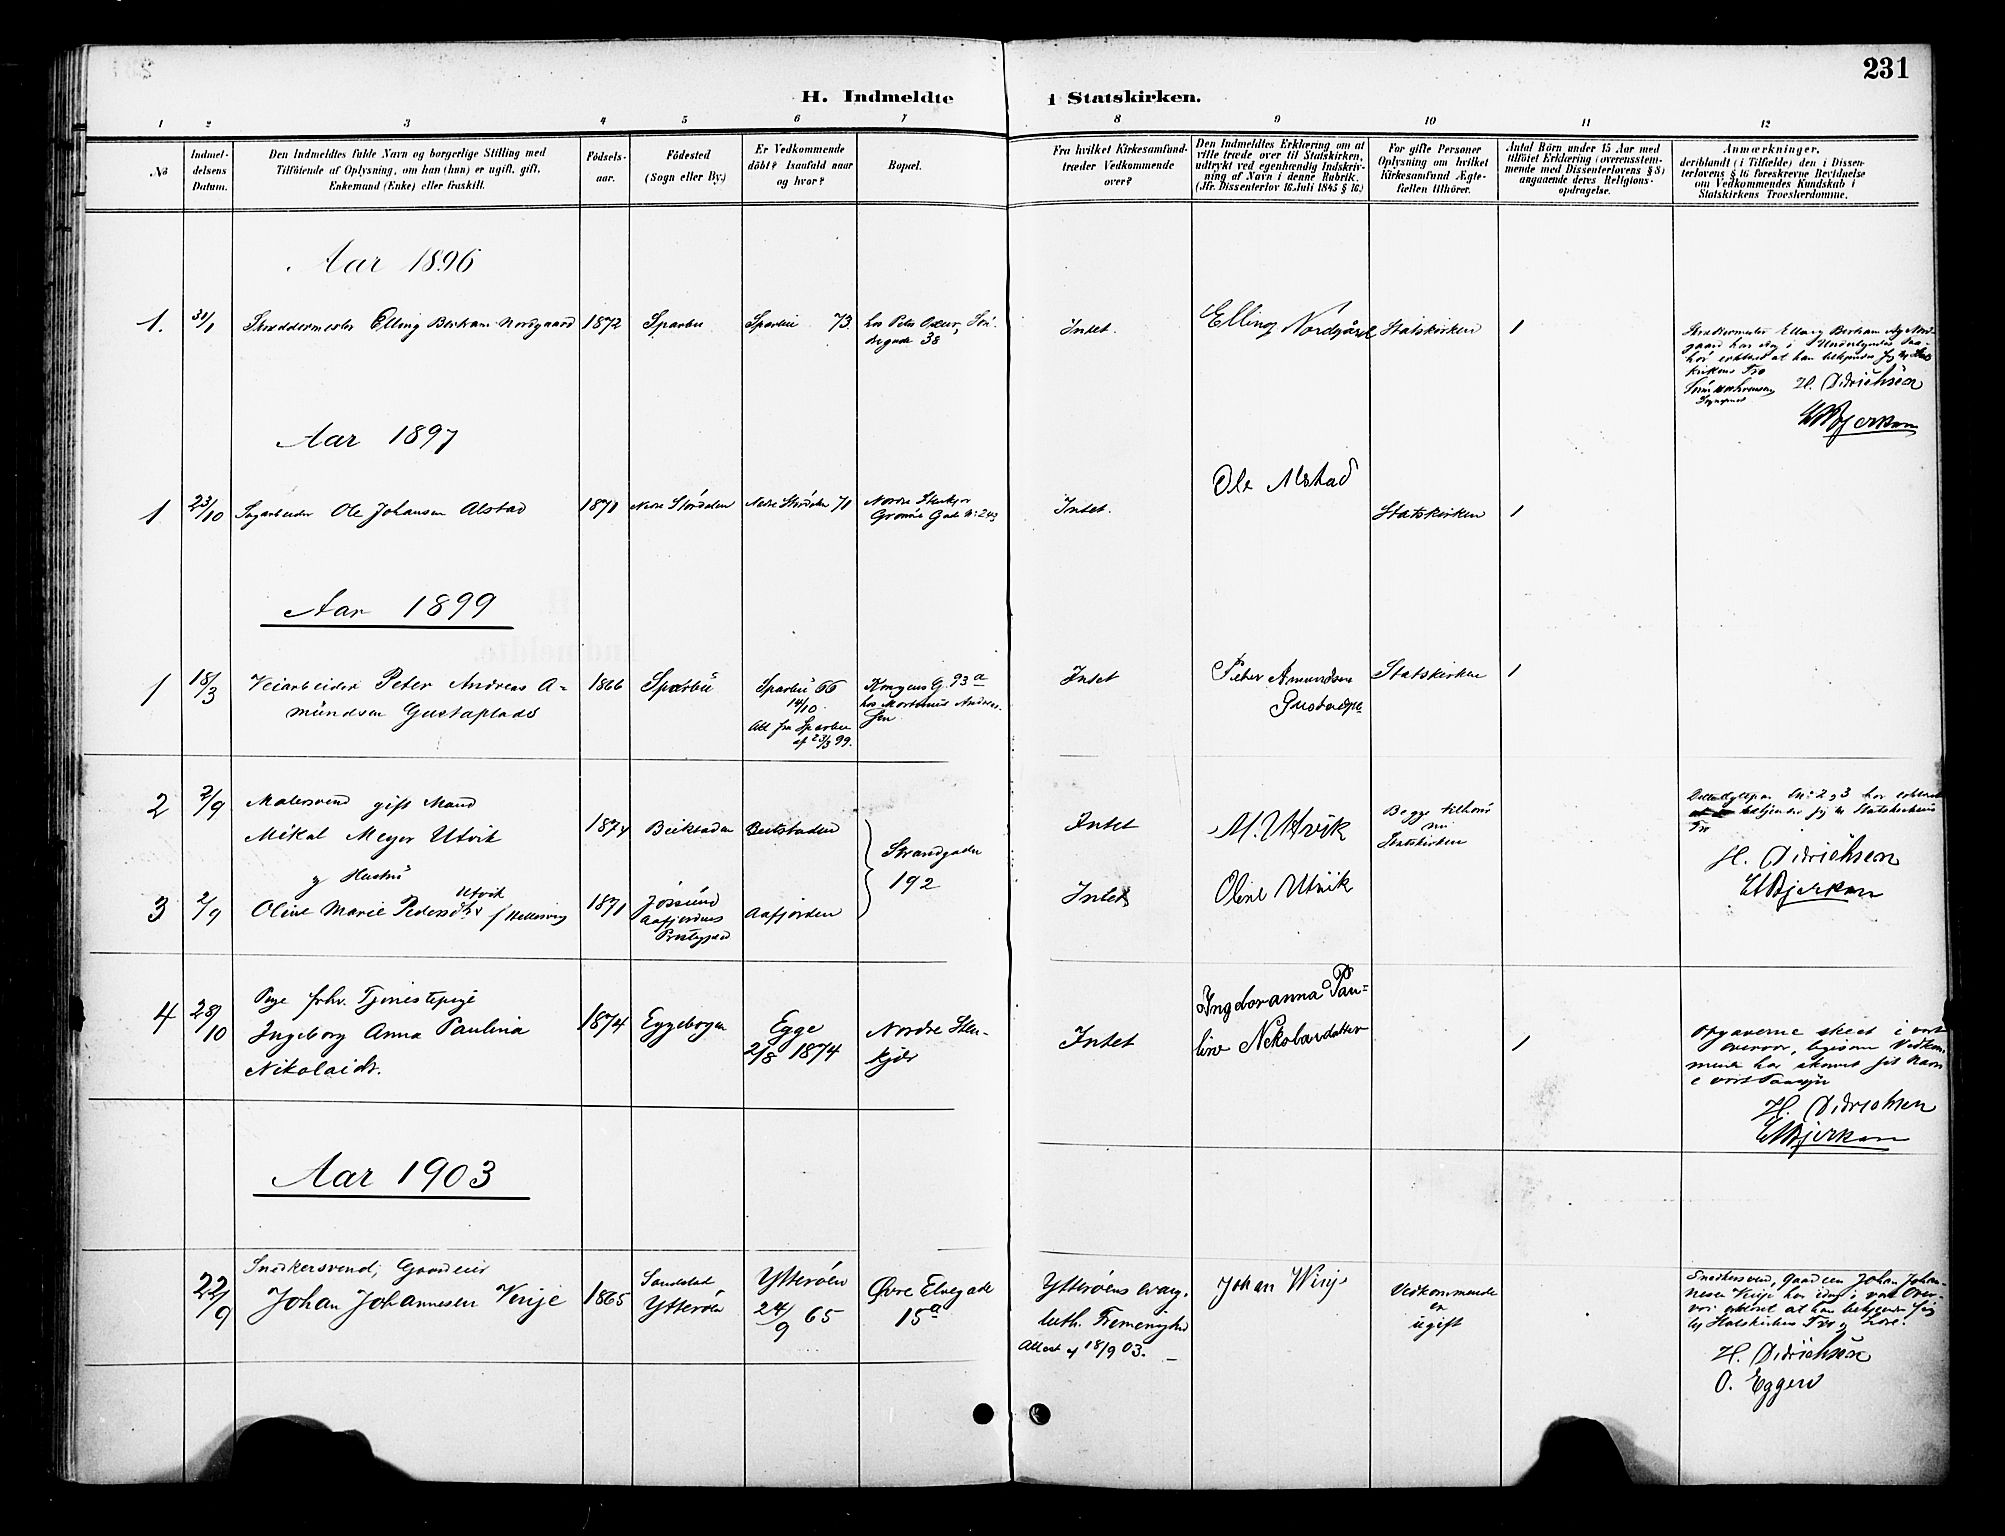 231
H. Indmeldte i Statskirken.
1 2 3 4 5 6 7 8 9 10 11 12
No
Indmel-
delsens
Datum.
Den Indmeldtes fulde Navn og borgerlige Stilling med
Tilföiende af Oplysning, om han (hun) er ugift, gift,
Enkemand (Enke) eller fraskilt.
Födsels-
aar.
Födested
(Sogn eller By.)
Er Vedkommende
döbt? Isaafald naar
og hvor?
Bopæl.
Fra hvilket Kirkesamfund
træder Vedkommende
over?
Den Indmeldtes Erklæring om at
ville træde over til Statskirken,
udtrykt ved egenhændig Indskriv-
ning af Navn i denne Rubrik.
(Jfr. Dissenterlov 16 Juli 1845 § 16.)
For gifte Personer
Oplysning om hvilket
Kirkesamfund Ægte-
fællen tilhörer.
Antal Börn under 15 Aar med
tilföiet Erklæring (overensstem-
mende med Dissenterlovens § 8)
angaaende deres Religions-
opdragelse.
Anmærkninger,
deriblandt (i Tilfælde) den i Dissen-
terlovens § 16 foreskrevne Bevidnelse
om Vedkommendes Kundskab i
Statskirkens Troeslærdomme.
Aar 1896
1. 31/1 Skræddermester Elling Bertram Nordgaard 1872 Sparbu Sparbu 73.
38
Intet. Elling Nordgård Statskirken 1
H. Didrichsen
Bjerkan
Aar 1897
1 23/10 Sagarbeider Ole Johansen Alstad 1871 Nedre Stördalen Nedre Stördalen 71 Nordre Stenkjær
Intet. Ole Alstad Statskirken 1
Aar 1899
1 18/3 Veiarbeider Peter Andreas A-
mundsen Gustafplads
1866 Sparbu Sparbu 66
14/10
Att. fra Sparbu
af 23/3 99.
Kongens G. 93a
hos Martinus Andre-
sen
Intet Peter Amundsen
Statskirken 1
2 2/9 Malersvend gift Mand
Mikal Meyer Utvik
1874 Beitstaden Beitstaden
Strandgaden
192
Intet M. Utvik
Begge tilhører
nu
Statskirken
& Hustru
3 2/9 Oline Marie Pedersdtr Utvik
1871 Jössund
Aafjordens
Prestegjeld
Aafjorden
Intet Oline Utvik
H. Didrichsen
Bjerkan
4 28/10 Pige frhv. Tjenestepige
Ingeborg Anna Paulina
Nikolaidr.
1874 Eggebogen Egge
2/8 1874
Nordre Sten-
kjær
Intet Ingboranna Pau-
line Nikolaidatter
1
Opgaverne skeet i vort
overvær, ligesom Vedkom-
mende har skrevet sit Navn
i vort Paasyn
H. Didrichsen
Bjerkan
Aar 1903
22/9 Snedkersvend, Gaardeier
Johan Johannesen Verije
1865 Sandstad
Ytterøen
Ytterøen
24/9 65
Øvre Elvegade
15a
Ytterøens evang.
luth. Fremenighed
Attest af 18/9 03.
Johan Wirje
Vedkommende
er
ugift
Snedkersvend, gaardeier Johan Johan-
nesen Verije har idag i vort Over-
vær erklæret at han bekjender sig
til Statskirkens Tro og Lære.
H. Didrichsen
O. Eggen